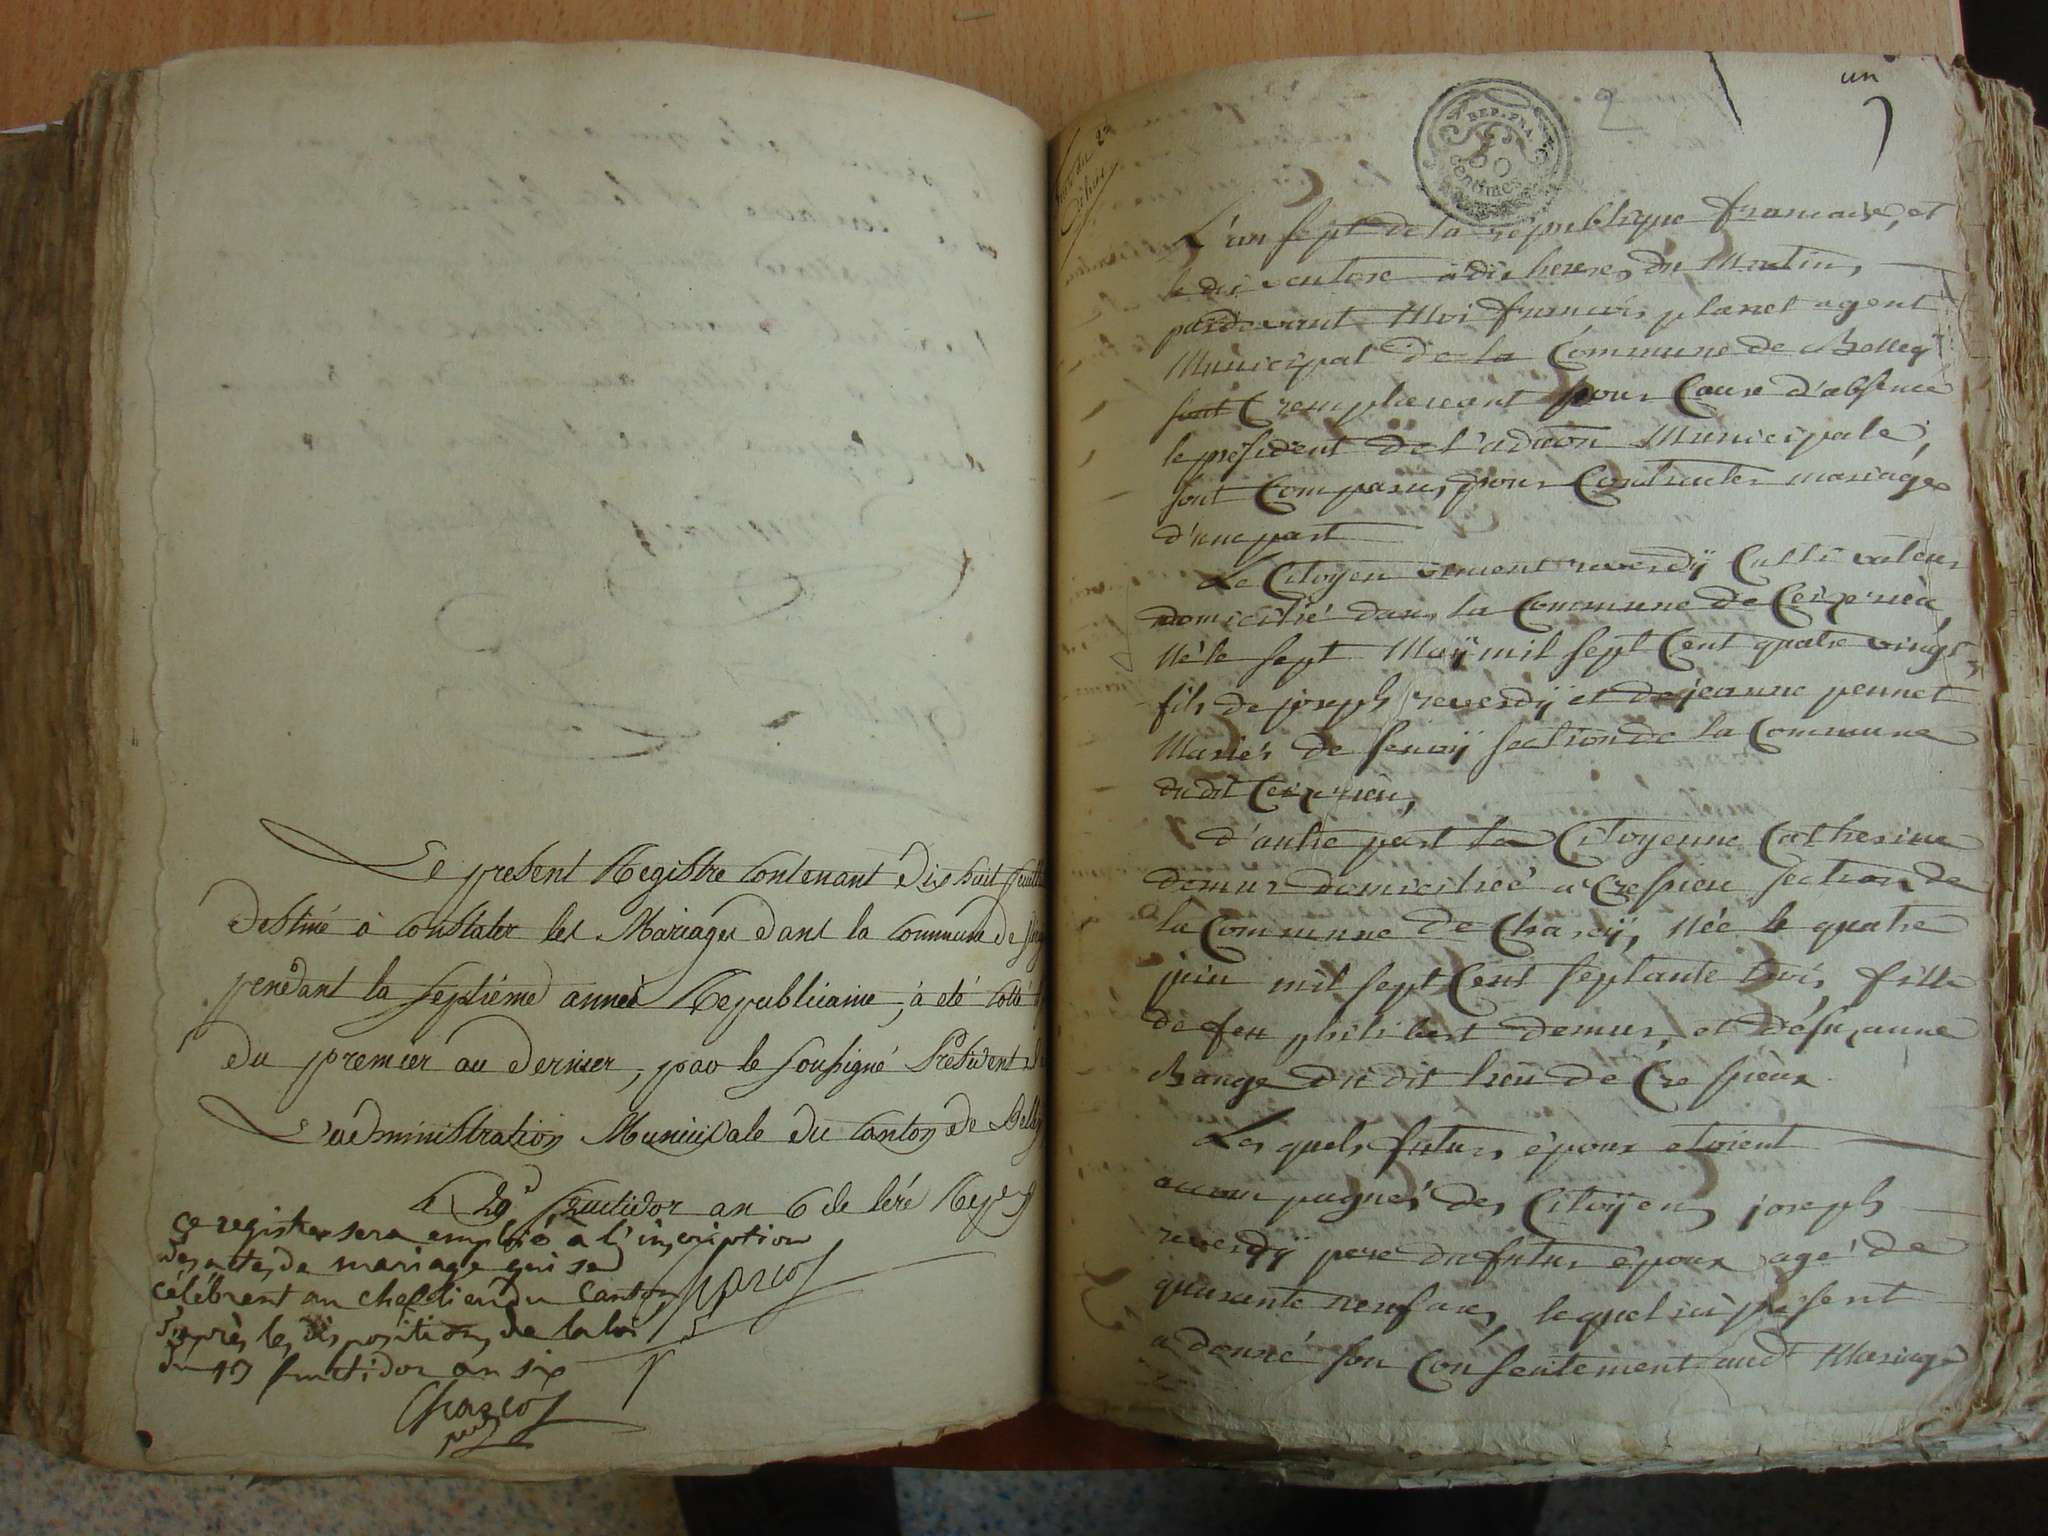 Le present Registre Contenant dix huit feuill
destiné à constater les Mariages dans la commune de
pendant la septième année Republicaine, à eté cotté
du premier au dernier, par le soussigné President de
L'administration Municipale du canton de Belley
29 fructidor an 6 de l'ére Rep
Ce registre sera emploié à l'inscription
des actes de mariage qui se
célébrent au chef lieu du Canton
d'après les dispositions de la loi
du 13 fructidor an six
un
2
REP. FRA.
50
centimes
L'an sept de la république francaise, et
le dix ventose à dix heures du Matin,
pardevant Moi francois planet agent
Municipal de la Commune de Belley
remplacant pour Cause d'absence
le président de l'adm̃on Municipale,
sont Comparus, pour Contracter mariage
d'une part
Le Citoyen vincent reverdÿ Cultivateur
domicilié dans la Commune de Ceyzerieu,
Né le sept Maÿ mil sept Cent quatre vingt,
fils de joseph reverdÿ et de jeanne pennet
Mariés de senoÿ section de la Commune
du dit Ceyzerieu,
d'autre part la Citoyenne Catherine
demur domiciliée a Crespieu section de
la Commune de Chaseÿ, Née le quatre
juin mil sept Cent septante trois, fille
de feu philibert demur, et
du dit lieu de Crespieux
Les quels futurs époux etoient
accompagnés des Citoÿens joseph
reverdÿ pere du futur époux agé de
quarante neuf ans, lequel ici présent
a donné son Consentement aud.t Mariage